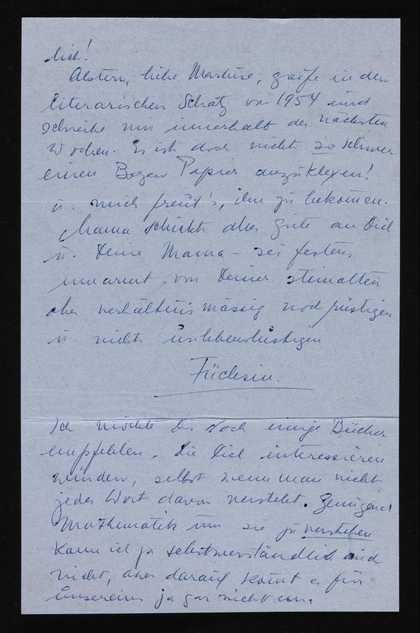 dich!
Alstern, liebe Martine, greife in den
literarischen Schatz von 1954 und
schreibe mir innerhalb der nächsten
Wochen. Es ist doch nicht so schwer
einen Bogen Papier anzuklexen!
u. mich freut's, ihn zu bekommen.
Mama schickt alles gute an Dich
u. Deine Mama – sei festens
umarmt von Deiner steinalten
aber verhältnismässig noch rüstigen
u. nicht unlebenslustigen
Füchsin.
Ich möchte Dir doch einige Bücher
empfehlen, die Dich interessieren
würden, selbst wenn man nicht
jedes Wort davon versteht. Genügend
Mathematik um sie zu verstehen
kann ich ja selbstverständlich auch
nicht, aber darauf kommt es für
unsereins ja gar nicht an.